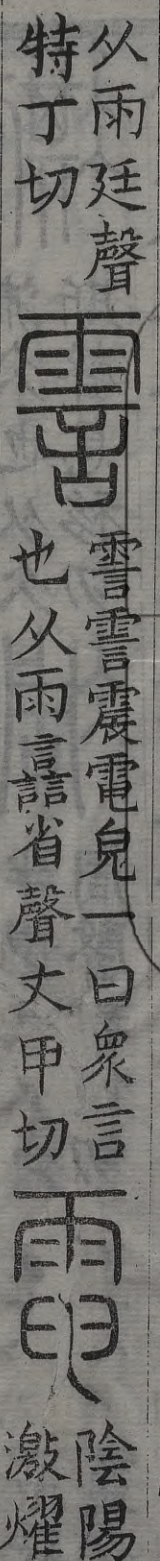 从雨廷聲
特丁切
霅
霅霅震電皃一曰眾言
也从雨譶省聲丈甲切
電
陰陽
激燿